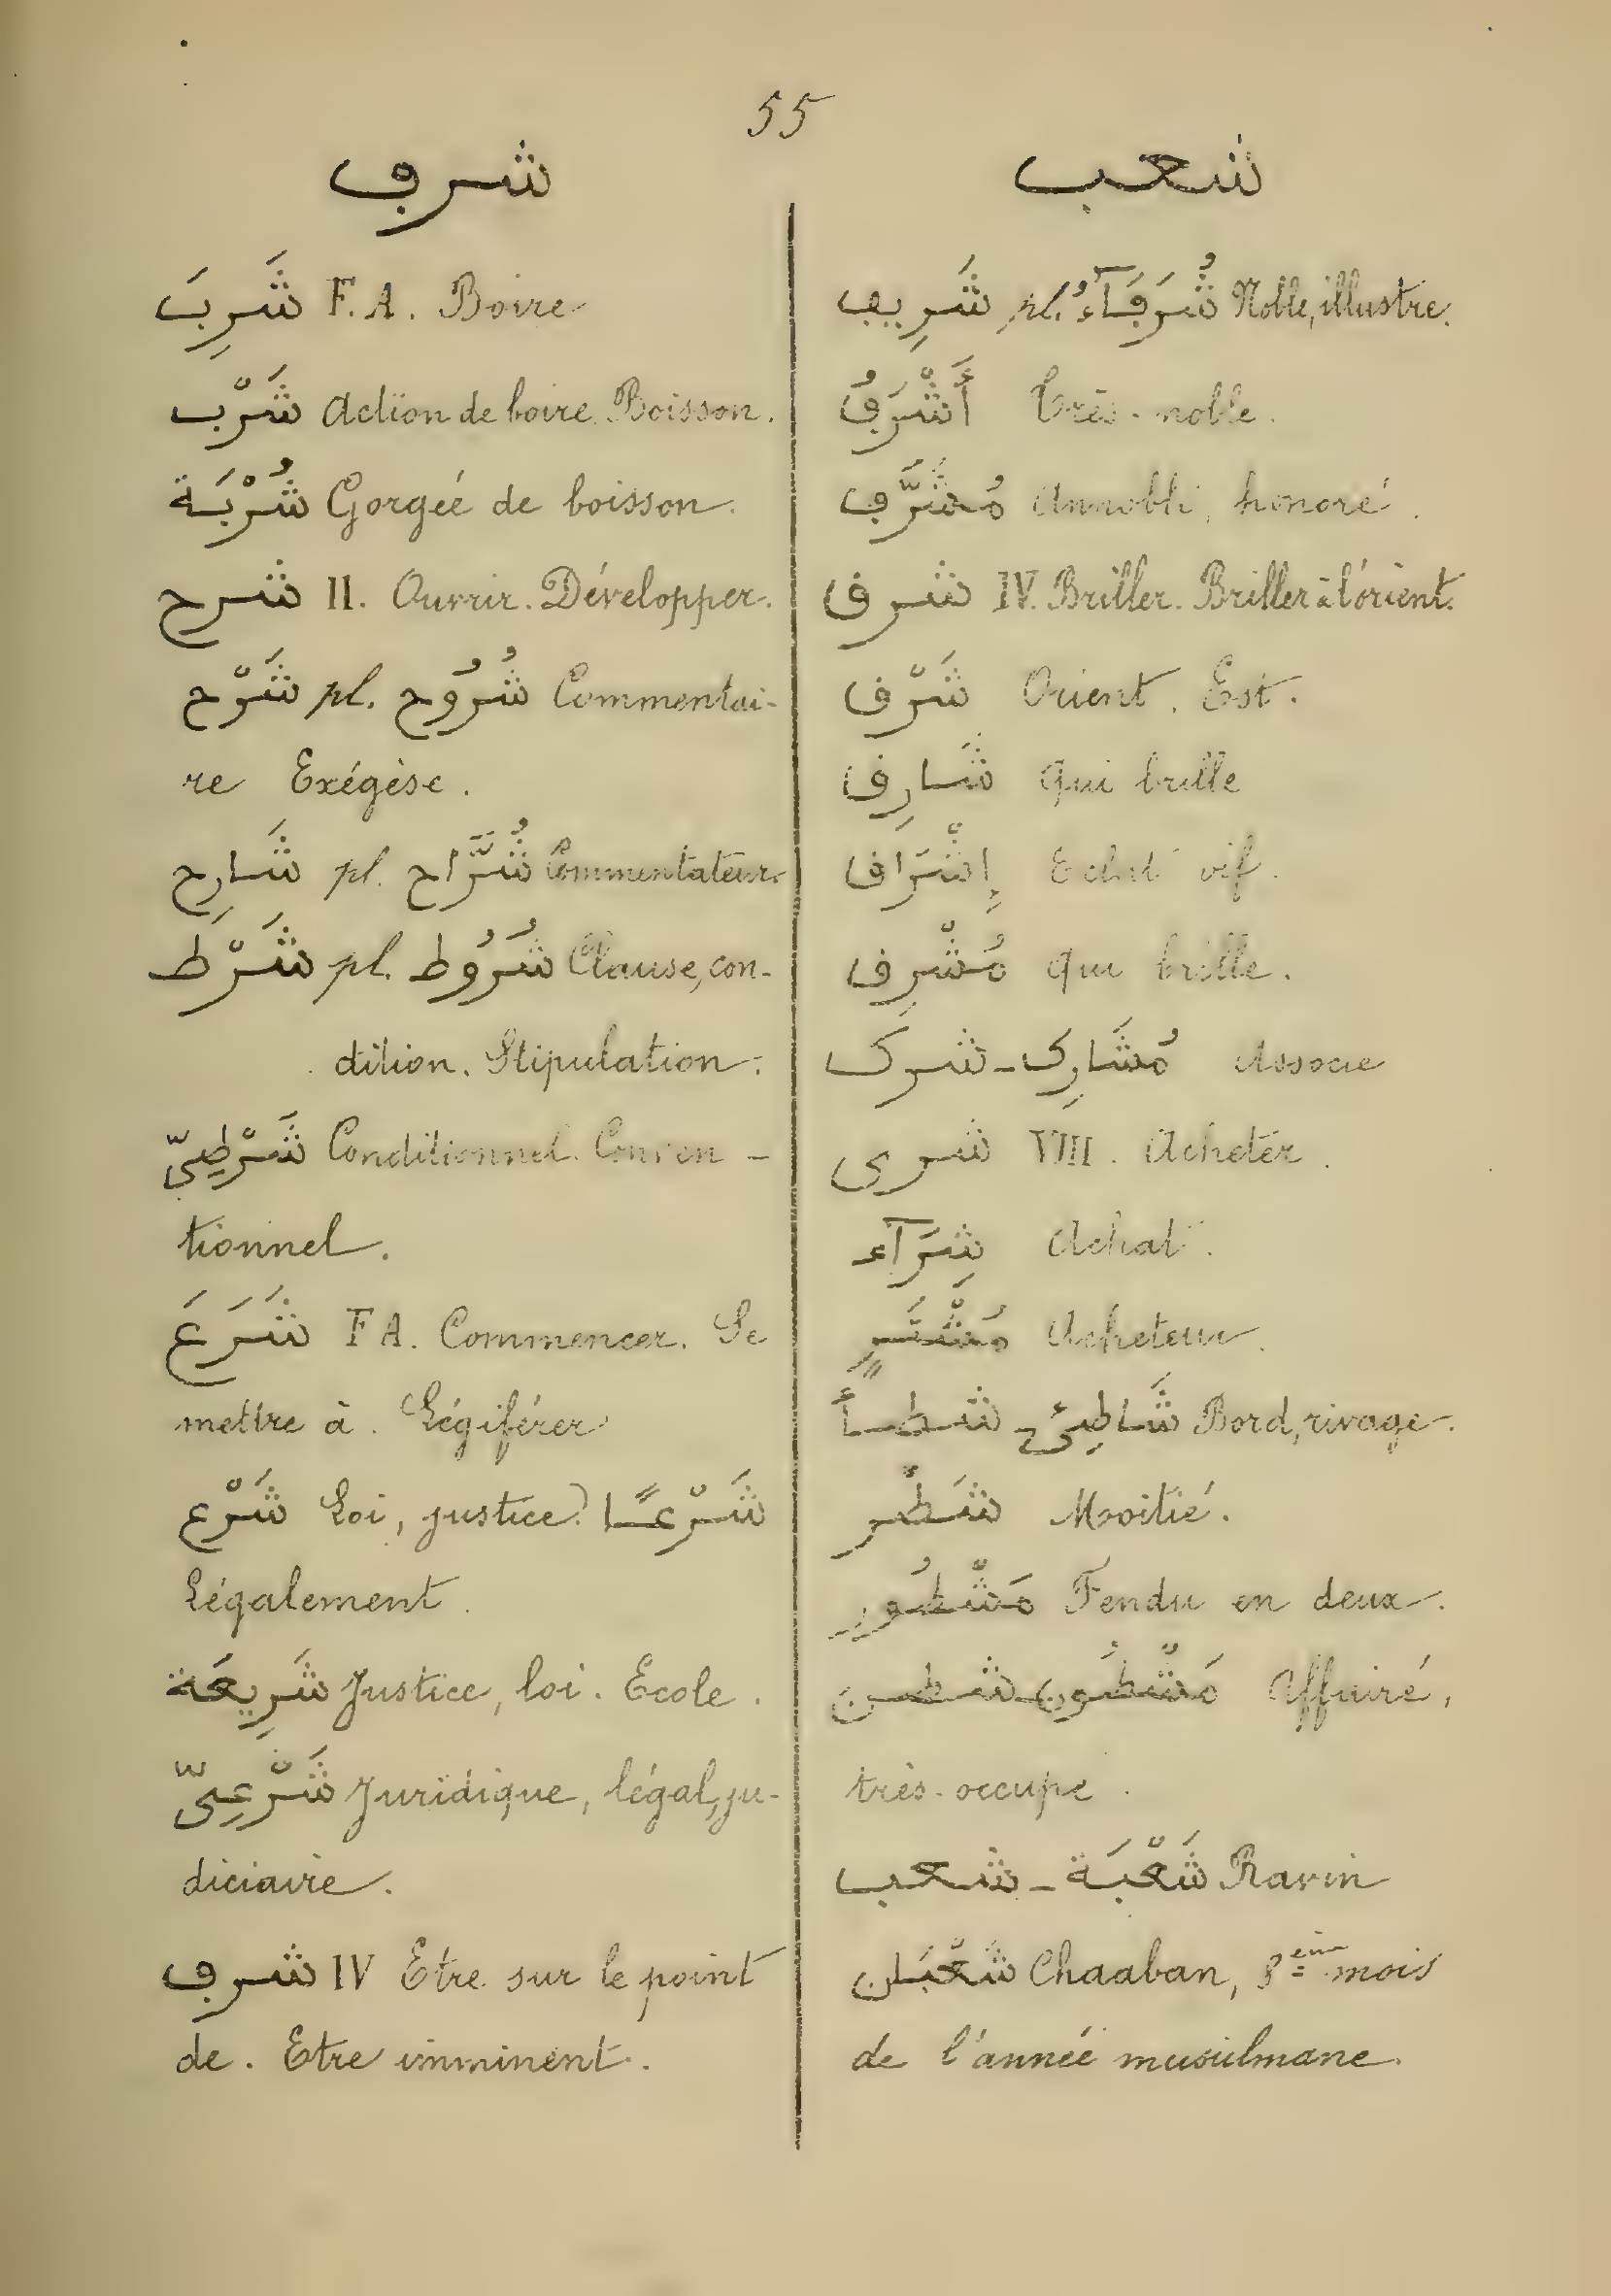 55
شرف
شَرِبَ F. A. Boire
شَرْب Action de boire. Boisson.
شُرْبَة Gorgée de boisson.
شرح II. Ouvrir. Développer.
شَرْح pl. شُرُوح Commentai-
re Exégèse.
شَارِح pl. شُرَّاح Commentateur.
شَرْط pl. شُرُوط Clause, con-
dition. Stipulation.
شَرْطِىّ Conditionnel. Conven-
tionnel.
شَرَعَ F A. Commencer. Se
mettre à. Légiférer
شَرْع Loi, justice. شَرْعًا
Légalement.
شَرِيعَة Justice, loi. Ecole.
شَرْعِىّ Juridique, légal, ju-
diciaire.
شرف IV Etre sur le point
de. Etre imminent.
شعب
شَرِيف pl. شُرَفَآءُ Noble, illustre.
أَشْرَفُ Très-noble.
مُشَرَّف Annobli, honoré.
شرق IV. Briller. Briller à l'orient.
شَرْق Orient. Est.
شَارِق Qui brille
إِشْرَاق Eclat vif.
مُشْرِق Qui brille.
شرك - مُشَارِك Associé
شرى VIII. Acheter.
شِرَآء Achat.
مُشْتَرٍ Acheteur.
شطأ - شَاطِئ Bord, rivage.
شَطْر Moitié.
مَشْطُور Fendu en deux.
شطن - مَشْطُون Affairé,
très-occupé.
شعب - شَعْبَة Ravin
شَعْبَان Chaaban, 8ème mois
de l'année musulmane.